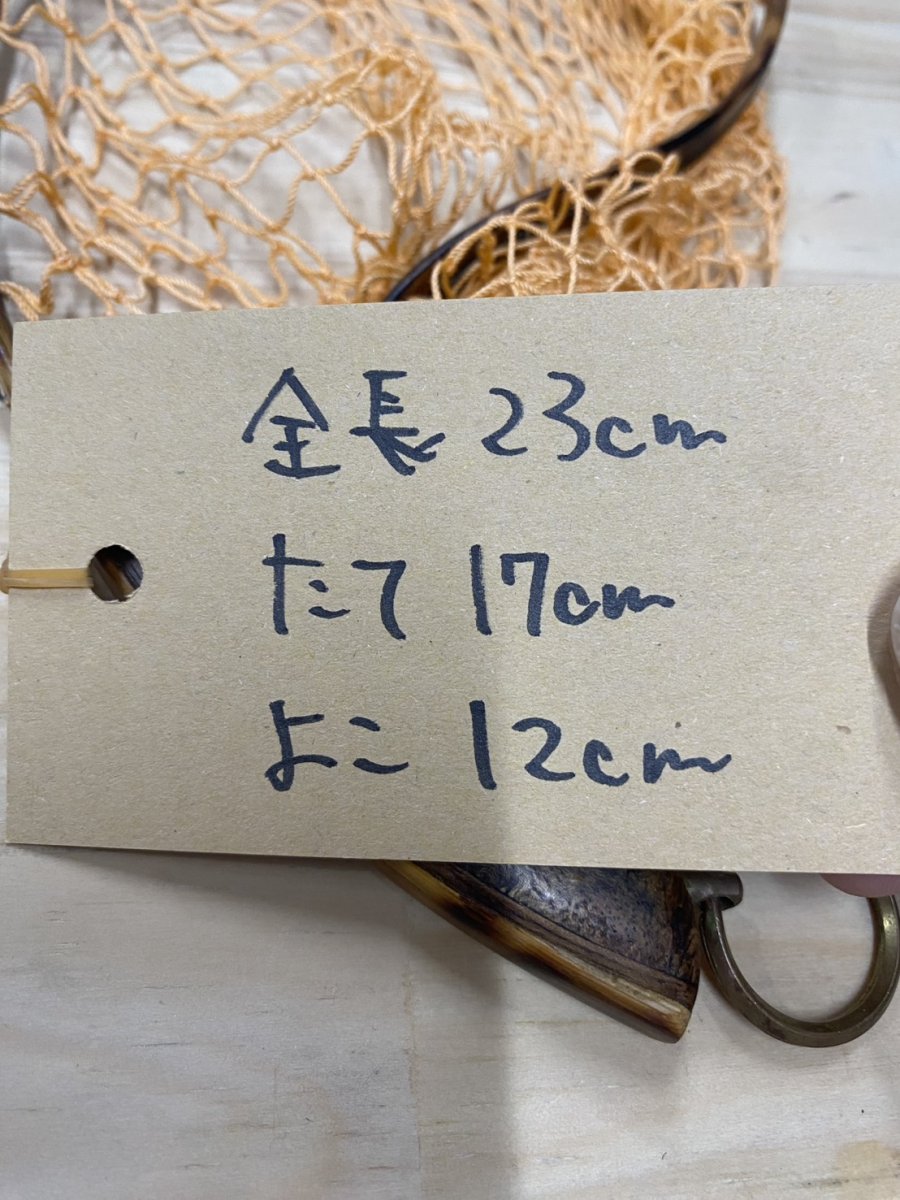 全長 23cm
たて 17cm
よこ 12cm